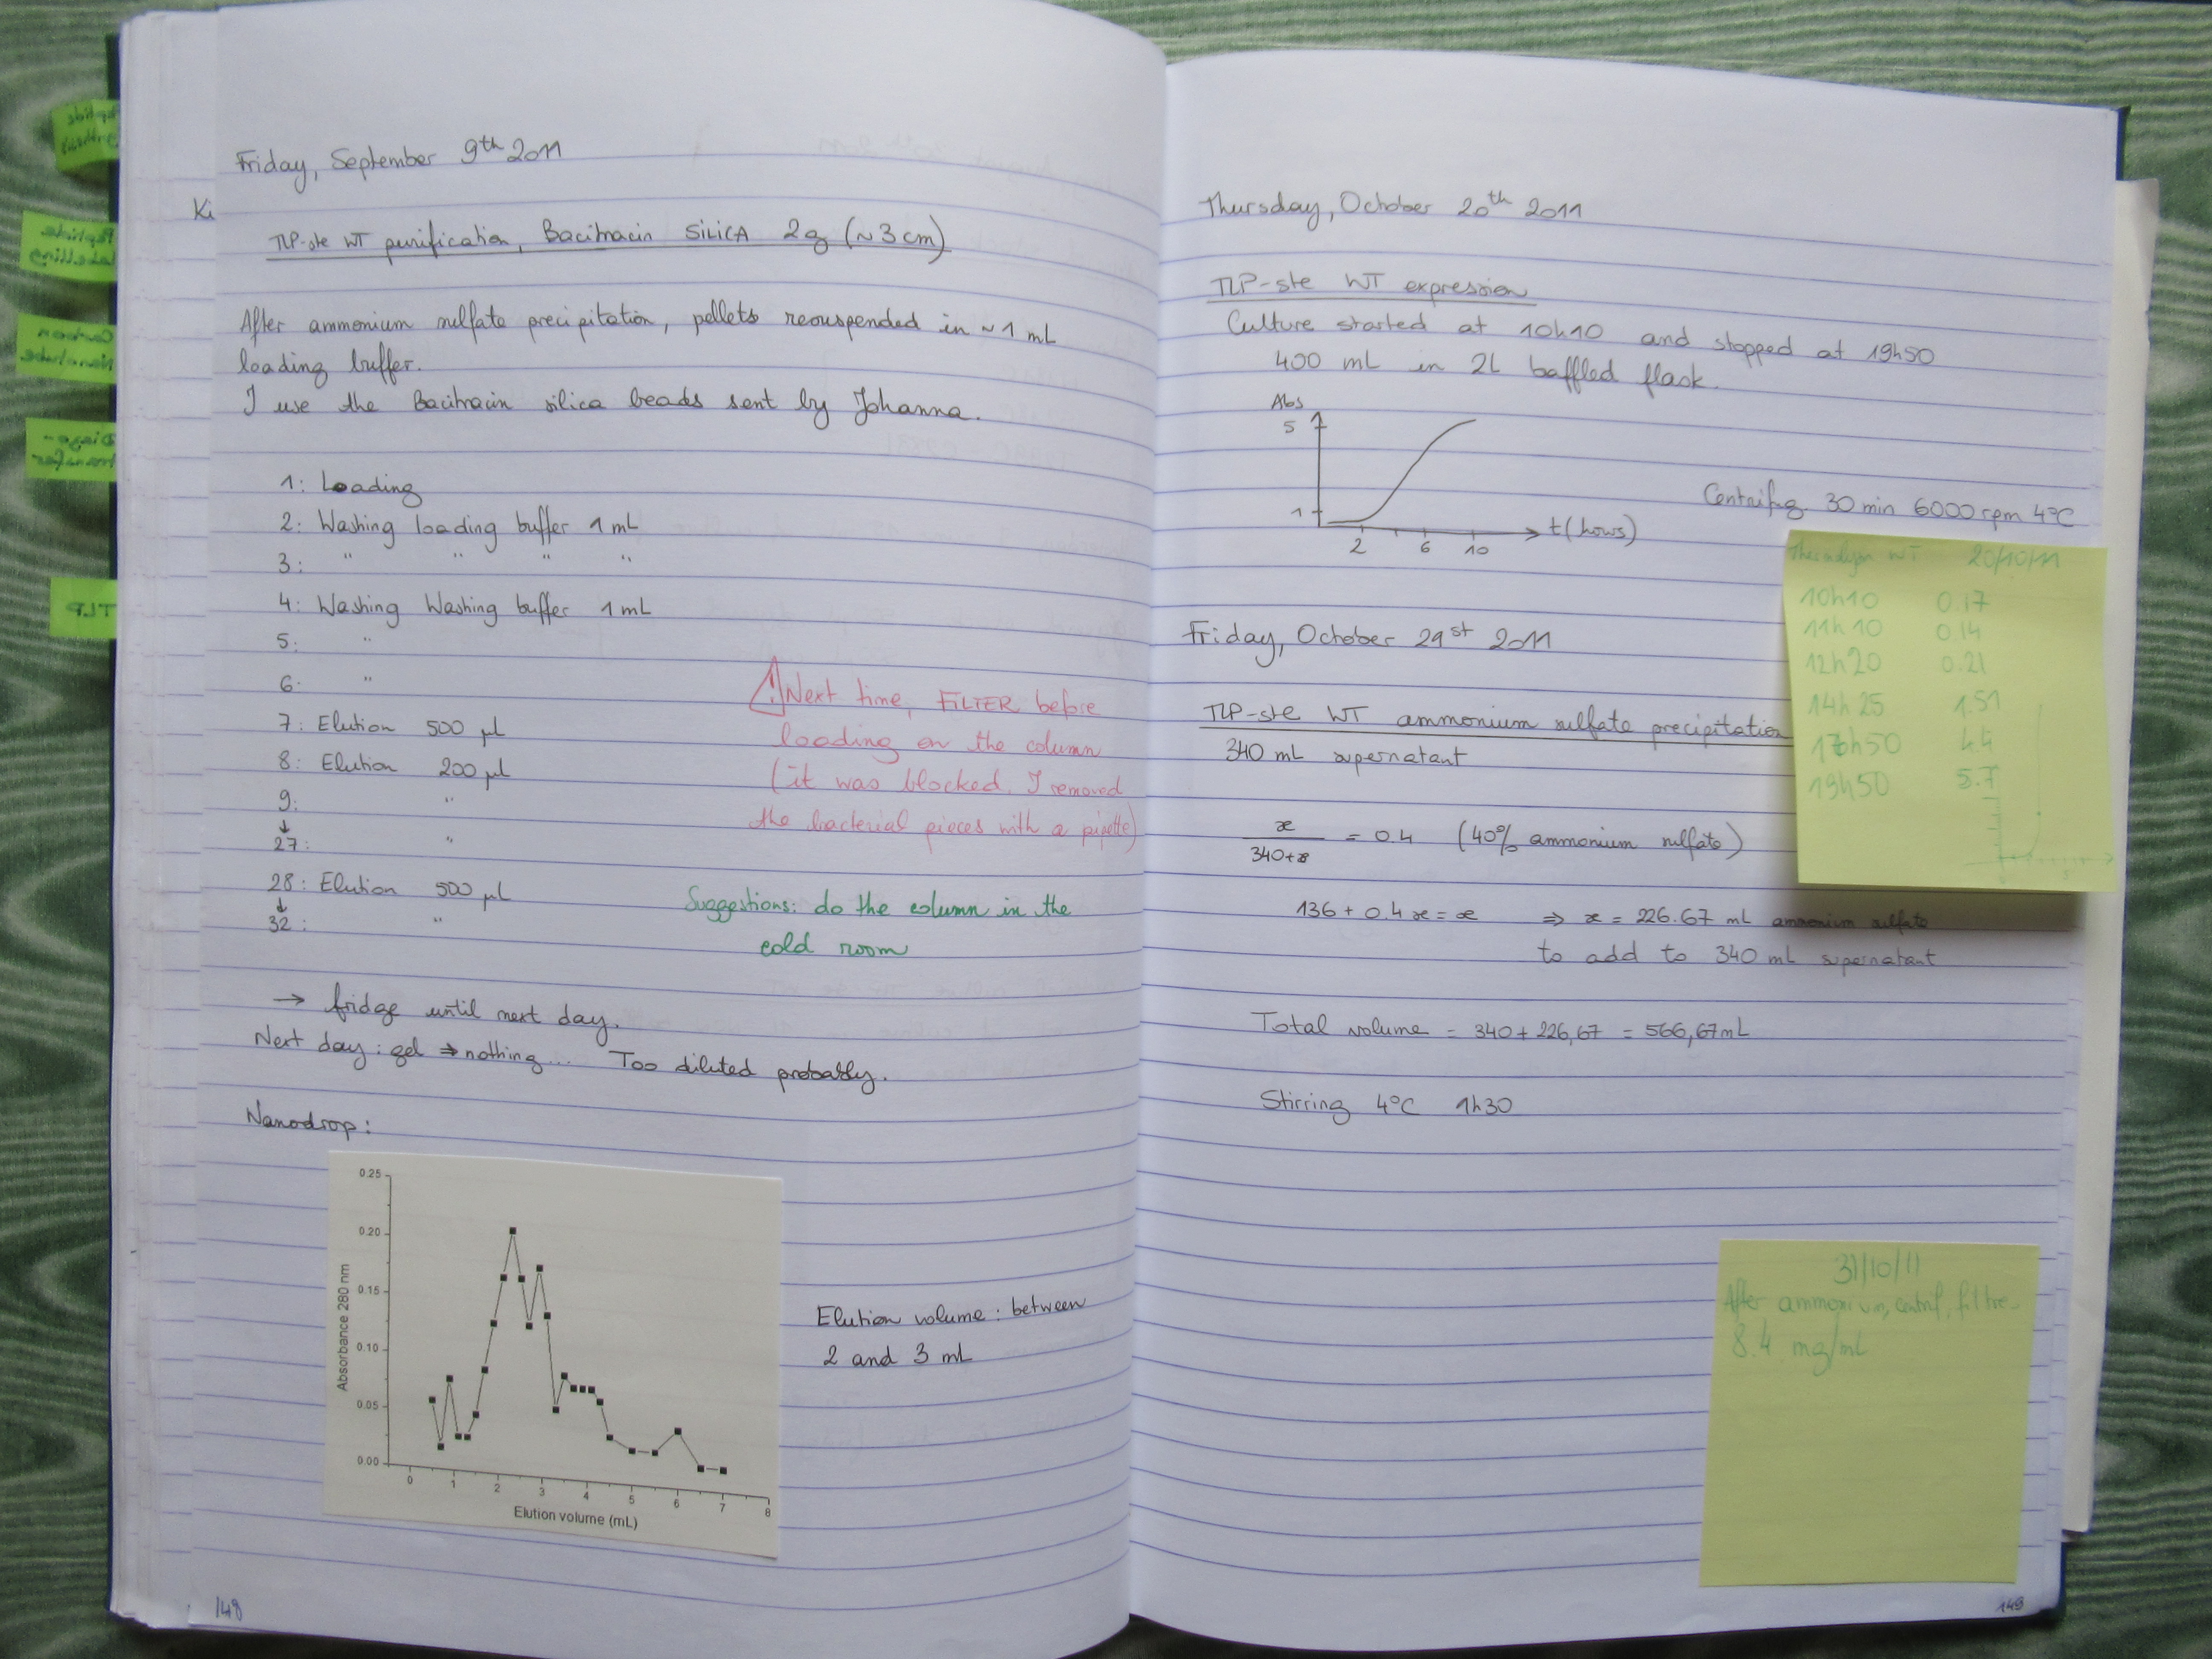 Peptide
Peptide
labelling
Carbon
Nanotube
Diazo-
transfer
TLP
Friday, September 9th 2011
Ki
TLP-ste WT purification, Bacitracin SILICA 2g (~3 cm)
After ammonium sulfate precipitation, pellets resuspended in ~1 mL
loading buffer.
I use the Bacitracin silica beads sent by Johanna.
1: Loading
2: Washing loading buffer 1 mL
3: " " " "
4: Washing Washing buffer 1 mL
5: "
6: "
7: Elution 500 µl
8: Elution 200 µl
9: "
↓
27: "
28: Elution 500 µl
↓
32: "
⚠ Next time, FILTER before
loading on the column
(it was blocked. I removed
the bacterial pieces with a pipette)
Suggestions: do the column in the
cold room
→ fridge until next day.
Next day: gel ⇒ nothing... Too diluted probably.
Nanodrop:
Absorbance 280 nm
0.25
0.20
0.15
0.10
0.05
0.00
0 1 2 3 4 5 6 7 8
Elution volume (mL)
Elution volume: between
2 and 3 mL
148
Thursday, October 20th 2011
TLP-ste WT expression
Culture started at 10h10 and stopped at 19h50
400 mL in 2L baffled flask.
Abs
5
1
2 6 10
t(hours)
Centrifug. 30 min 6000 rpm 4°C
WT 20/10/11
10h10 0.17
11h10 0.14
12h20 0.21
14h25 1.51
17h50 4.4
19h50 5.7
Friday, October 21st 2011
TLP-ste WT ammonium sulfate precipitation
340 mL supernatant
x / 340+x = 0.4 (40% ammonium sulfate)
136 + 0.4 x = x ⇒ x = 226.67 mL ammonium sulfate
to add to 340 mL supernatant
Total volume = 340 + 226,67 = 566,67 mL
Stirring 4°C 1h30
31/10/11
After ammonium, centrif, filtre
8.4 mg/mL
149